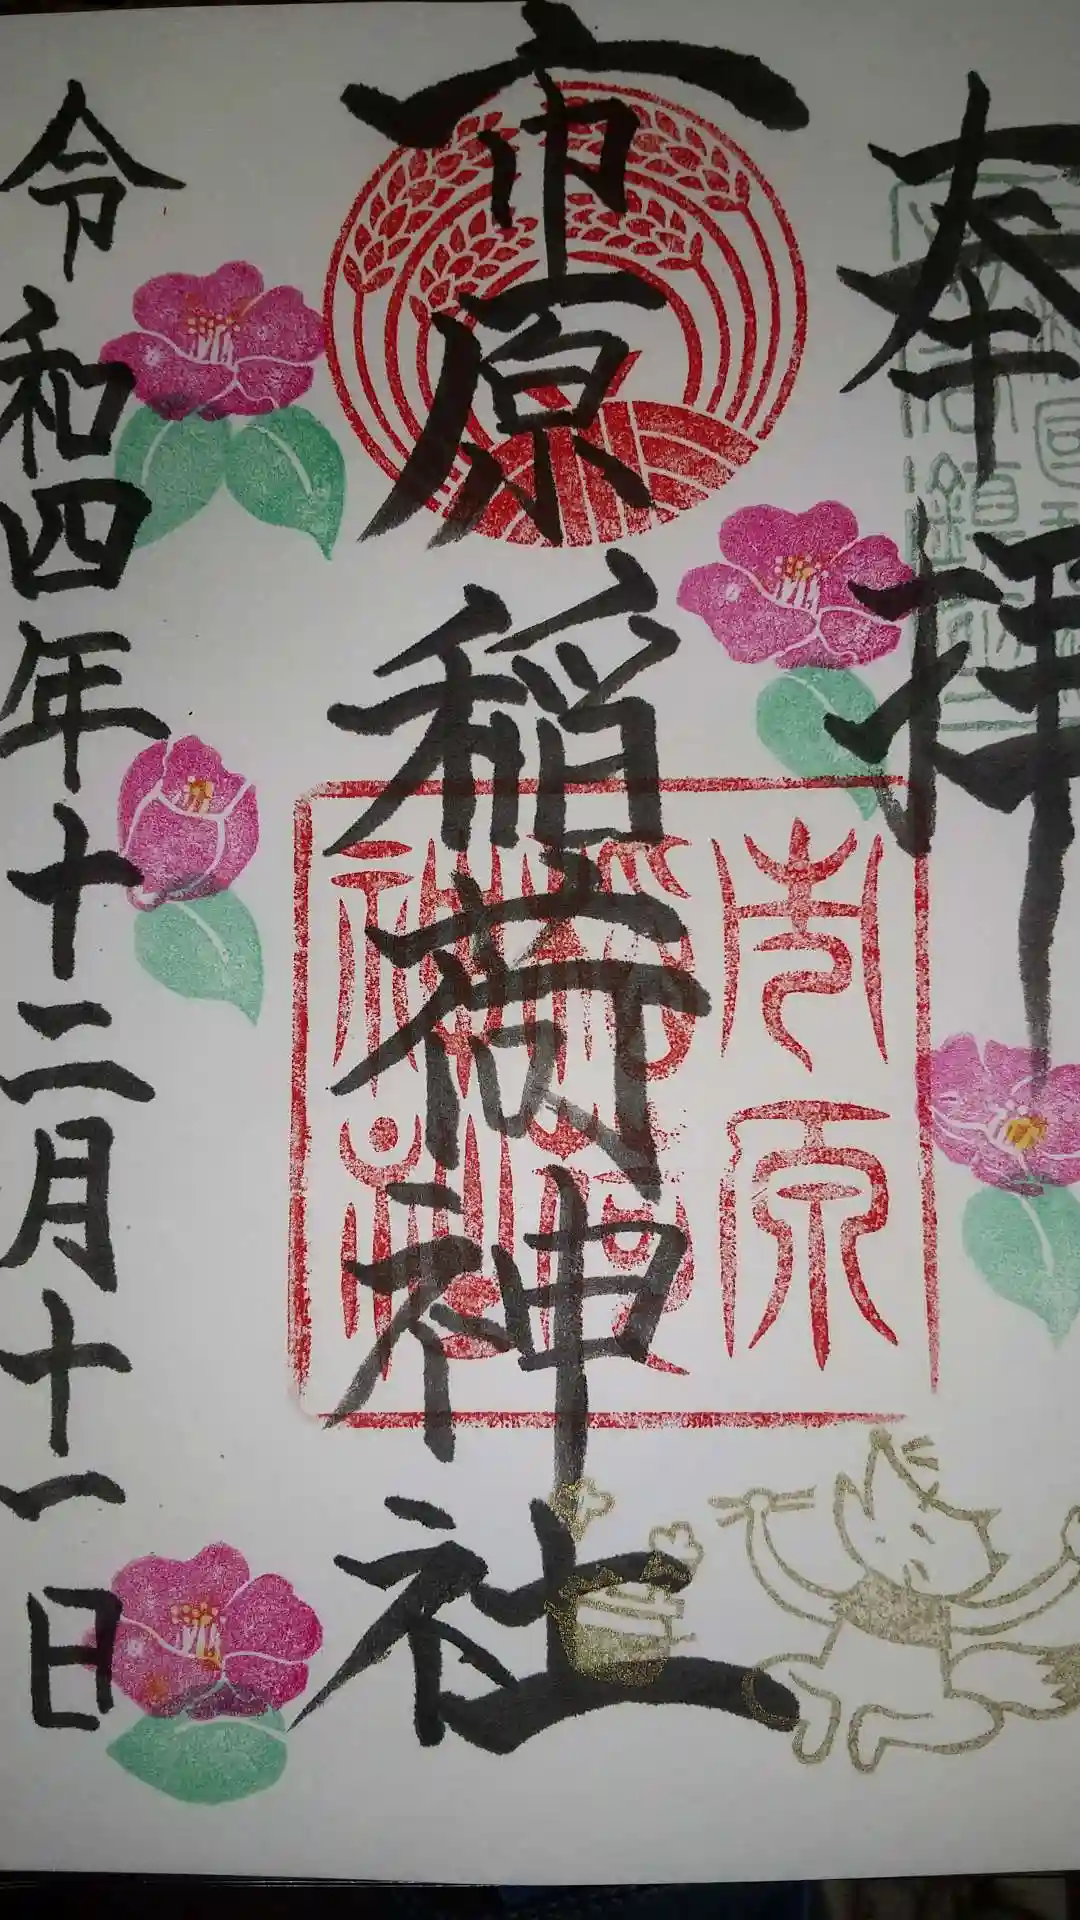 奉拝
市原稲荷神社
令和四年十二月十一日
市原